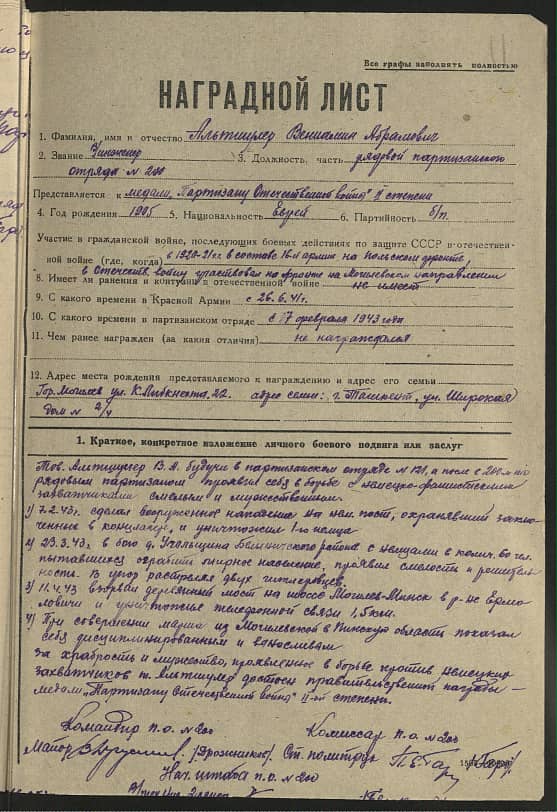 Все графы заполнять полностью
НАГРАДНОЙ ЛИСТ
1. Фамилия, имя и отчество Альтшулер Вениамин Абрамович
2. Звание 3. Должность, часть рядовой партизанского
отряда № 200
Представляется к медали „Партизану Отечественной войны" II степени
4. Год рождения 1905 5. Национальность Еврей 6. Партийность б/п.
Участие в гражданской войне, последующих боевых действиях по защите СССР и отечествен-
ной войне (где, когда) в 1920-21 г.г. в составе 16й армии на польском фронте,
в Отечеств. войну участвовал на фронте на Могилевском направлении
8. Имеет ли ранения и контузии в отечественной войне не имеет
9. С какого времени в Красной Армии с 26.6.41г.
10. С какого времени в партизанском отряде с 17 февраля 1943 года
11. Чем ранее награжден (за какия отличия) не награждался
12. Адрес места рождения представляемого к награждению и адрес его семьи
Гор. Могилев ул. К. Либкнехта 22. адрес семьи: г. Ташкент, ул. Широкая
дом № 2/4
1. Краткое, конкретное изложение личного боевого подвига или заслуг
Тов. Альтшулер В.А. будучи в партизанском отряде № 121, а после с 200-м
рядовым партизаном проявил себя в борьбе с немецко-фашистскими
захватчиками смелым и мужественным.
1) 7.2.43г. сделал вооруженное нападение на нем. пост, охранявший заклю-
ченных в концлагере, и уничтожил 1-го немца
2) 23.3.43г. в бою д. района с немцами в колич. чел.
пытавшихся ограбить мирное население, проявил смелость и решитель-
ность. В упор расстрелял двух гитлеровцев.
3) 11.4.43 взорвал деревянный мост на шоссе Могилев-Минск в р-не Ермо-
ловичи и уничтожение телефонной связи 1,5 км.
4) При совершении марша из Могилевской в Пинскую области показал
себя дисциплинированным и выносливым
За храбрость и мужество, проявленное в борьбе против немецких
захватчиков т. Альтшулер достоин правительственной награды –
медали „Партизану Отечественной войны" II-ой степени.
Командир п.о. № 200 Комиссар п.о. № 200
Майор Ст. политрук
Нач. штаба п.о. № 200